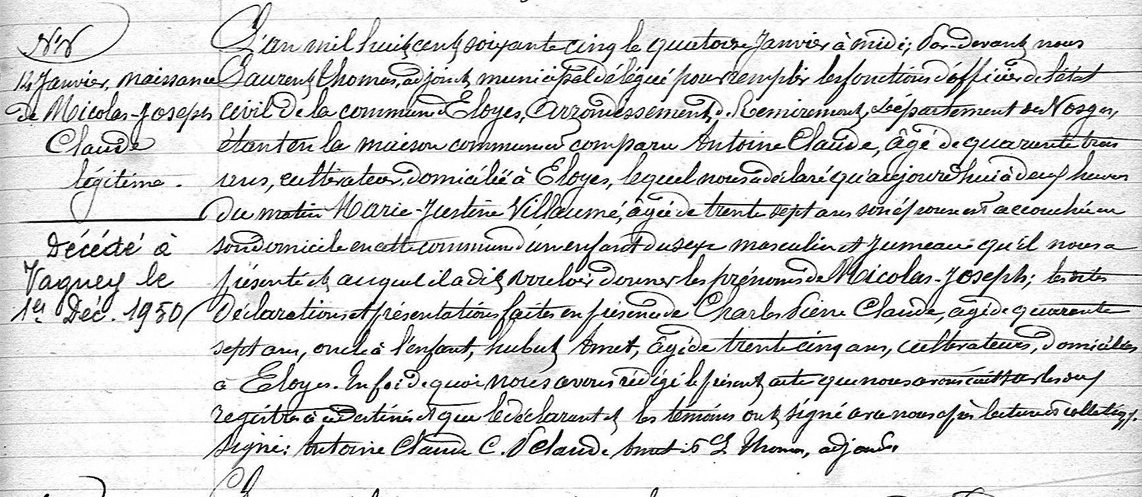 N° 5
14 Janvier, naissance
de Nicolas-Joseph
Claude
légitime.
Décédé à
Vagney le
1er Déc. 1950
L'an mil huit cent soixante cinq le quatorze Janvier à midi; Par-devant nous
Laurent Thomas, adjoint municipal délégué pour remplir les fonctions d'officier de l'état
civil de la commune d'Eloyes, arrondissement de Remiremont, département des Vosges,
étant en la maison commune a comparu Antoine Claude, âgé de quarante trois
ans, cultivateur, domicilié à Eloyes, lequel nous a déclaré qu'aujourd'hui à deux heures
du matin Marie-Justine Villaumé, âgée de trente sept ans son épouse est accouchée en
son domicile en cette commune d'un enfant du sexe masculin et Jumeau qu'il nous a
présenté et auquel il a dit vouloir donner les prénoms de Nicolas-Joseph; les dites
déclarations et présentations faites en présence de Charles Pierre Claude, âgé de quarante
sept ans, oncle à l'enfant, Amet, âgé de trente cinq ans, cultivateurs, domiciliés
à Eloyes. En foi de quoi nous avons rédigé le présent acte que nous avons inscrit sur les deux
registres à ce destinés et que le déclarant et les témoins ont signé avec nous après lecture et
Signé: Antoine Claude C. P Claude Amet et L Thomas, adjoint